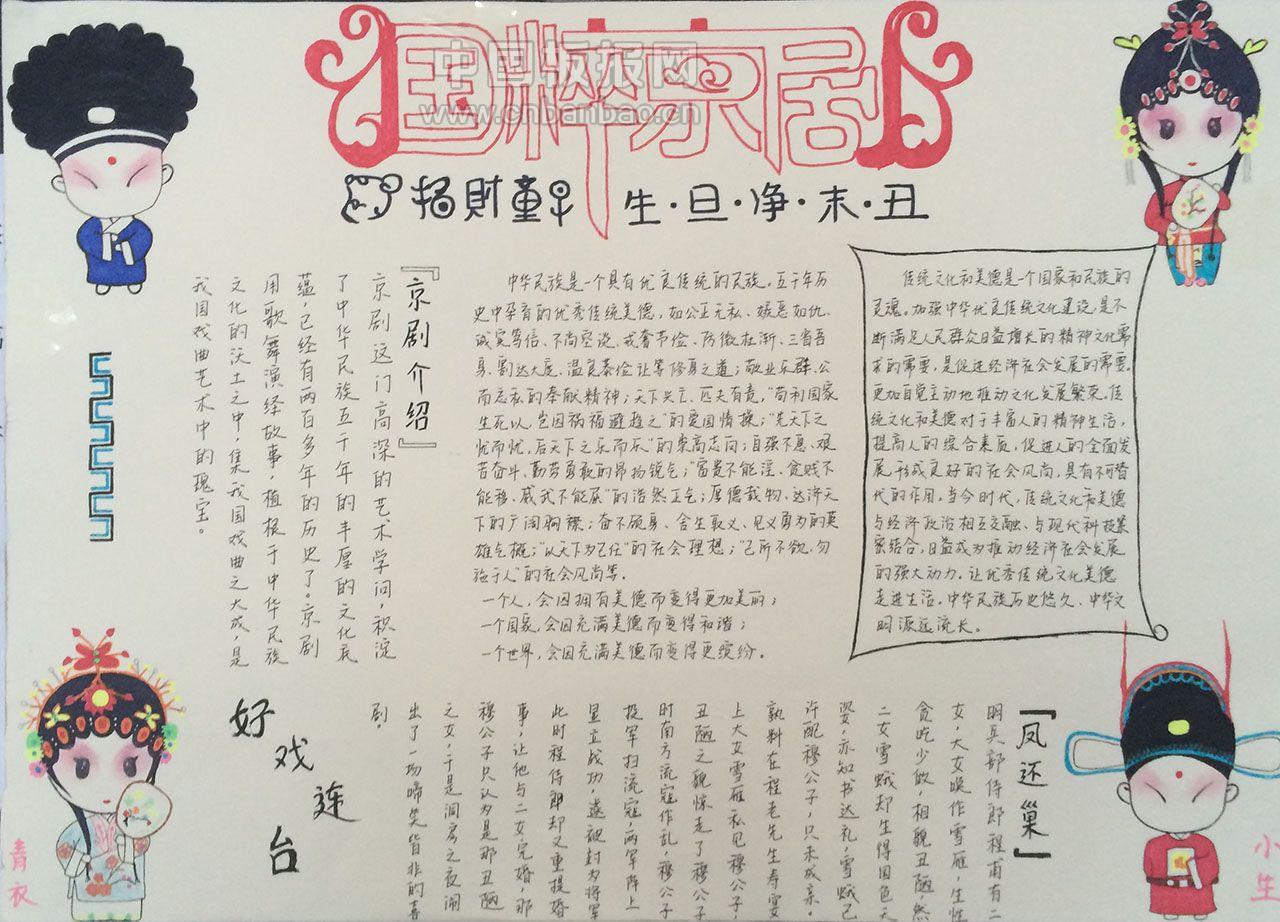 国粹京居
中国板报网
www.cnbanbao.cn
招財童早 生·旦·净·末·丑
『京剧介绍』
京剧这门高深的艺术学问,积淀
了中华民族五千年的丰厚的文化底
蕴,已经有两百多年的历史了。京剧
用歌舞演绎故事,植根于中华民族
文化的沃土之中,集我国戏曲之大成,是
我国戏曲艺术中的瑰宝。
中华民族是一个具有优良传统的民族。五千年历
史中孕育的优秀传统美德,如公正无私、嫉恶如仇、
诚实笃信、不尚空谈、戒奢节俭、防微杜渐、三省吾
身、豁达大度、温良恭俭让等修身之道;敬业乐群、公
而忘私的奉献精神;天下兴亡、匹夫有责,“苟利国家
生死以,岂因祸福避趋之”的爱国情操;“先天下之
忧而忧,后天下之乐而乐”的崇高志向;自强不息、艰
苦奋斗、勤劳勇敢的昂扬锐气;“富贵不能淫、贫贱不
能移、威武不能屈”的浩然正气;厚德载物、达济天
下的广阔胸襟;奋不顾身、舍生取义、见义勇为的英
雄气概;“以天下为己任”的社会理想;“己所不欲,勿
施于人”的社会风尚等。
一个人,会因拥有美德而变得更加美丽;
一个国家,会因充满美德而变得和谐;
一个世界,会因充满美德而变得更缤纷。
传统文化和美德是一个国家和民族的
灵魂。加强中华优良传统文化建设,是不
断满足人民群众日益增长的精神文化需
求的需要,是促进经济社会发展的需要。
更加自觉主动地推动文化发展繁荣。传
统文化和美德对于丰富人的精神生活,
提高人的综合素质,促进人的全面发
展,形成良好的社会风尚,具有不可替
代的作用。当今时代,传统文化和美德
与经济政治相互交融、与现代科技紧
密结合,日益成为推动经济社会发展
的强大动力。让优秀传统文化美德
走进生活。中华民族历史悠久、中华文
明源远流长。
好戏连台
『凤还巢』
明兵部侍郎程甫有二
女,大女唤作雪雁,生性
贪吃少做,相貌丑陋,然
二女雪娥却生得国色天
姿,亦知书达礼,雪娥已
许配穆公子,只未成亲。
孰料在程老先生寿宴
上大女雪雁私见穆公子,
丑陋之貌惊走了穆公子
时南方流寇作乱,穆公子
投军扫流寇,两军阵上
显立战功,遂被封为将军
此时程侍郎却又重提婚
事,让他与二女完婚,那
穆公子只认为是那丑陋
之女,于是洞房之夜闹
出了一场啼笑皆非的喜
剧。
青衣
小生